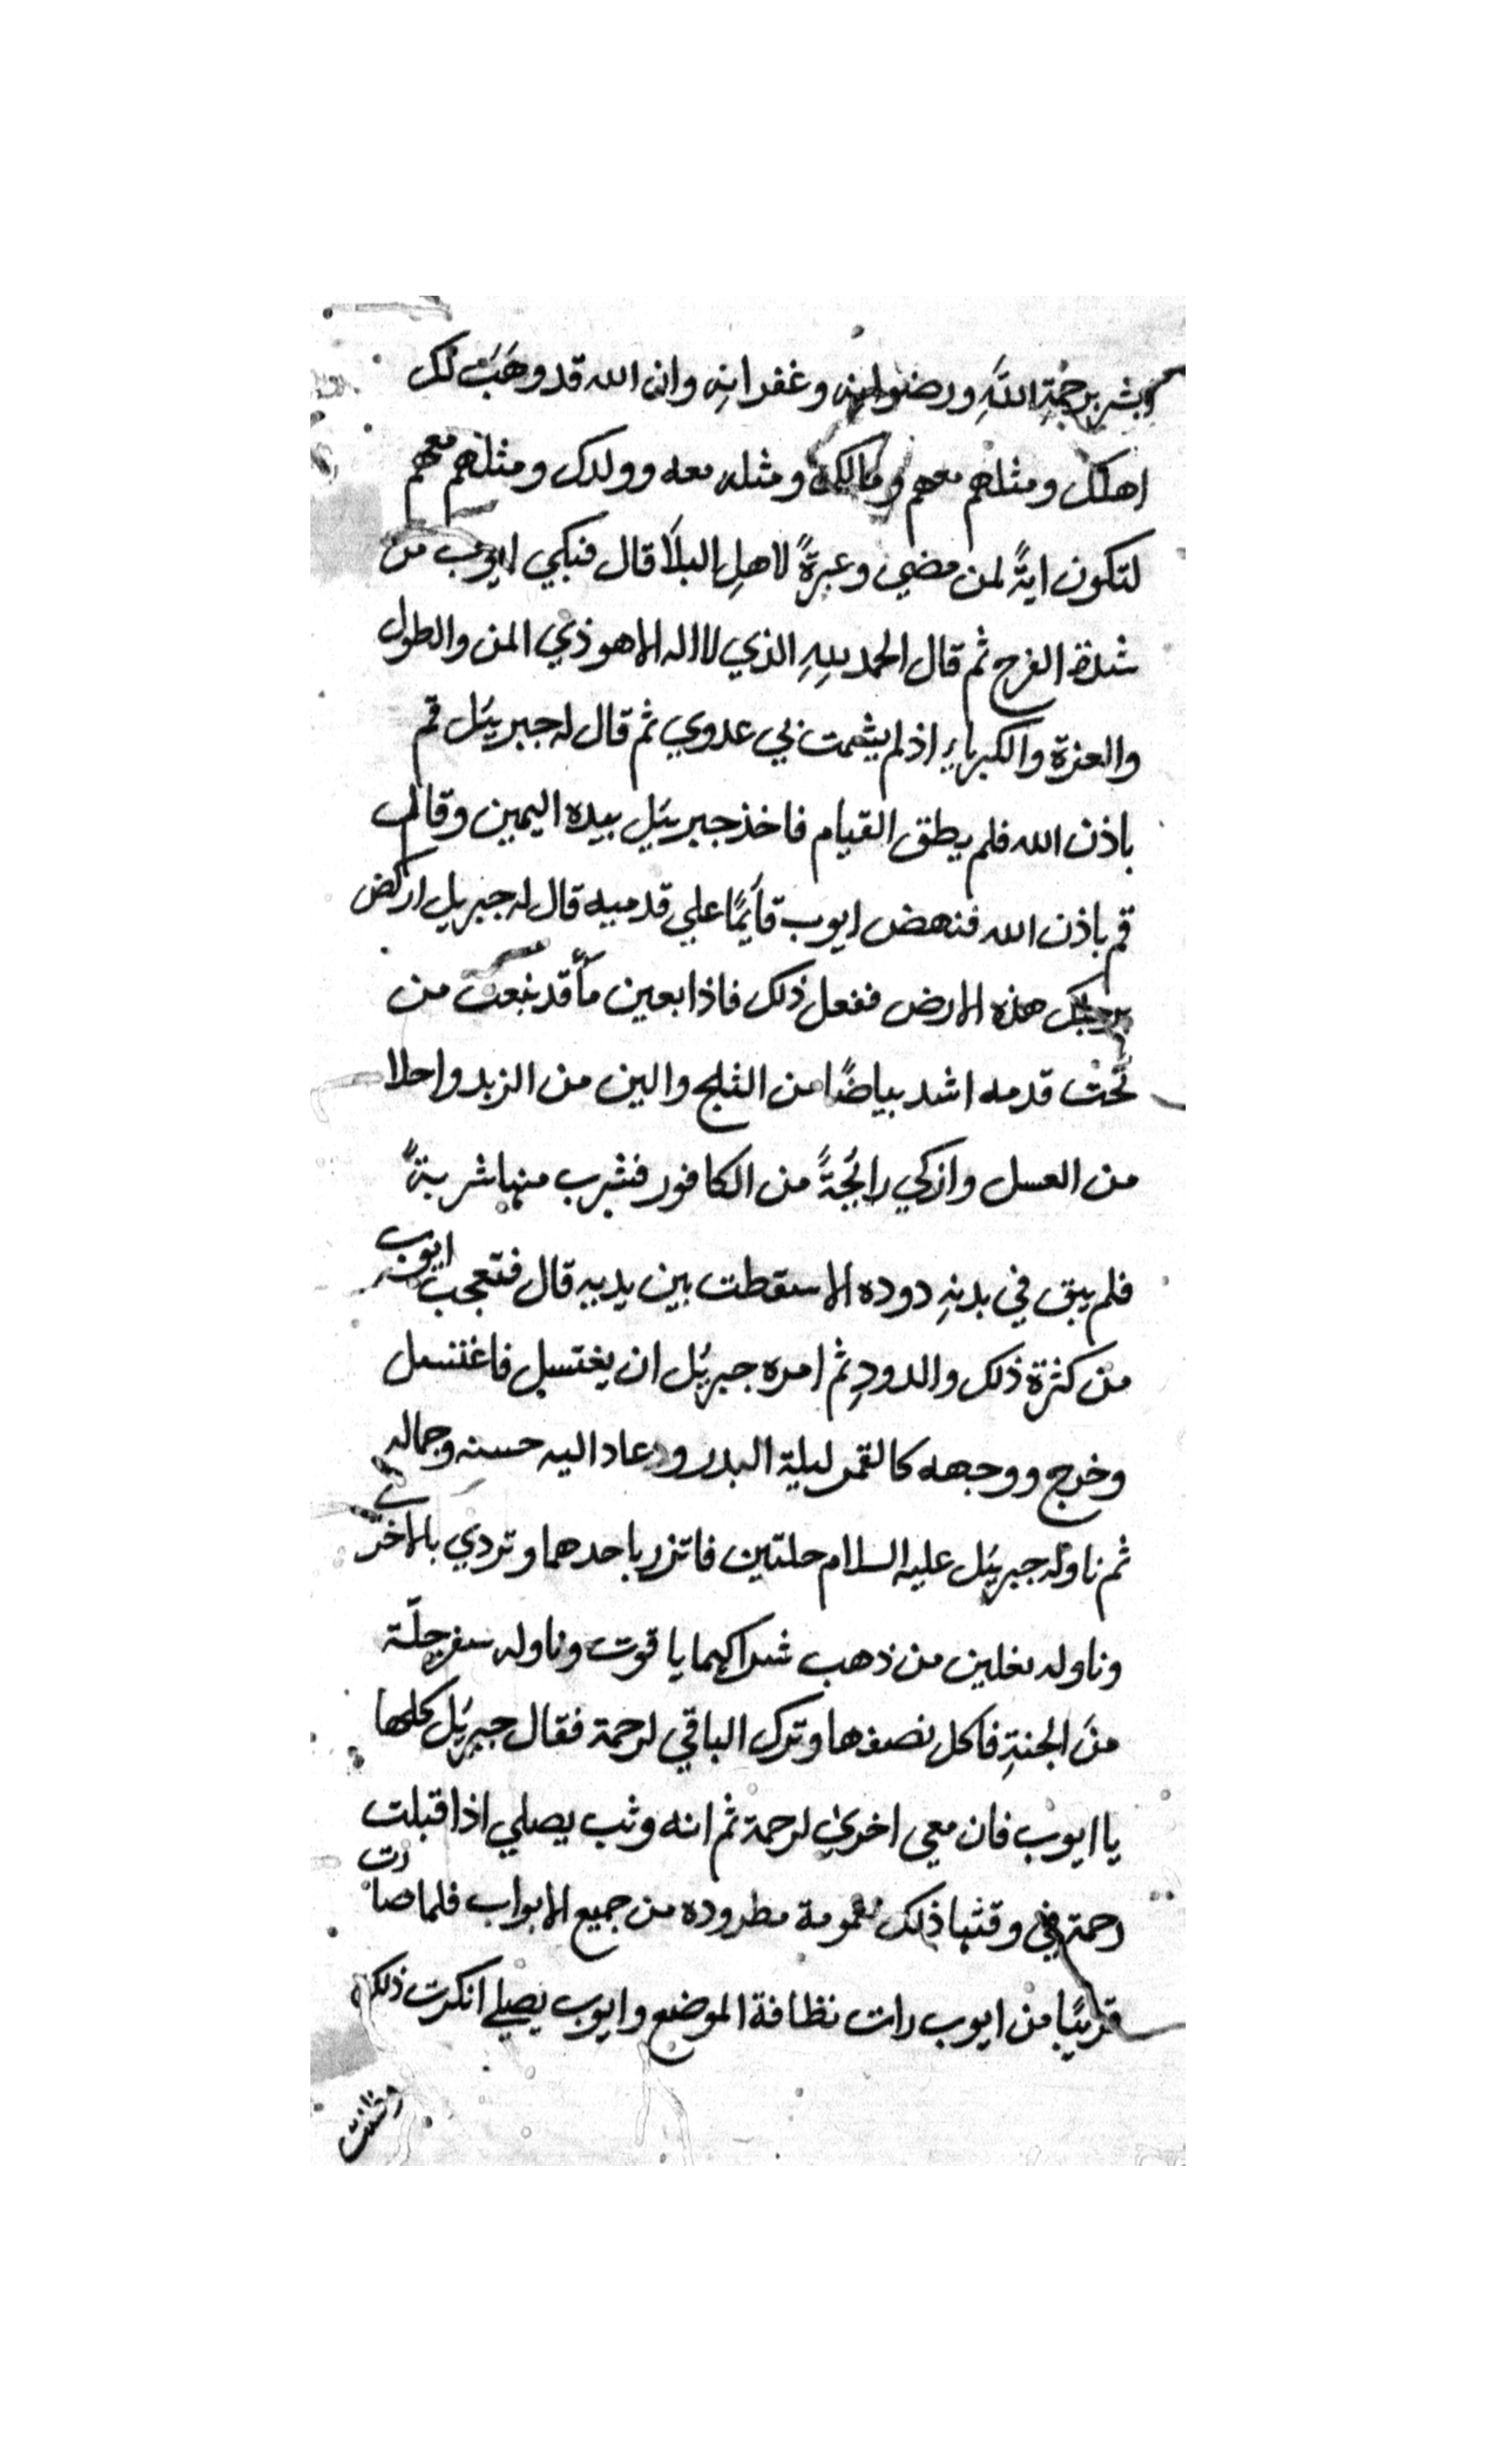 ابشر برحمةِ اللَّهِ ورضوانِهِ وغفرانِهِ وان الله قد وهَبَ لك
اهلك ومثلهم معهم ومالك ومثله معه وولدك ومثلهم معهم
لتكون ايةً لمن مضي وعبرةً لاهلِ البلَا قال فبكي ايوب من
شدة الفرح ثم قال الحمد للهِ الذي لا اله الا هو ذي المن والطول
والعزة والكبرياءِ اذ لم يشمت بي عدوي ثم قال له جبريئل قم
باذن الله فلم يطق القيام فاخذ جبريئل بيده اليمين وقال له
قم باذن الله فنهض ايوب قائمًا علي قدميه قال له جبريل اركض
برجلك هذه الارض ففعل ذلك فاذا بعين مآً قد نبعت من
تحت قدمه اشد بياضًا من الثلج والين من الزبد واحلا
من العسل وازكي رائحةً من الكافور فشرب منها شربةً
فلم يبق في بدنِهِ دوده الا سقطت بين يديه قال فتعجب ايوب
من كثرة ذلك والدودِ ثم امره جبريئل ان يغتسل فاغتسل
وخرج ووجهه كالقمر ليلة البدر وعاد اليه حسنه وجماله
ثم ناوله جبريئل عليه السلام حلتين فاتزر باحدهما وتردي بالاخري
وناوله نعلين من ذهب شراكهما ياقوت وناوله سفرجلّة
منَ الجنةِ فاكل نصفها وترك الباقي لرحمة فقال جبريئل كلها
يا ايوب فان معي اخري لرحمة ثم انه وثب يصلي اذا قبلت
رحمة في وقتها ذلك مغمومة مطروده من جميع الابواب فلما صارت
قريبًا من ايوب رات نظافة الموضع وايوب يصلي انكرت ذلك
وظنت